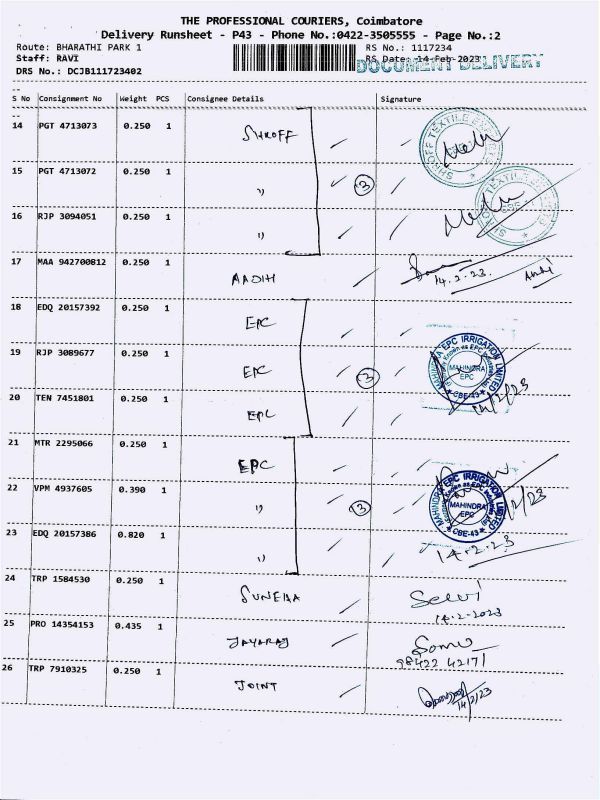 THE PROFESSIONAL COURIERS, Coimbatore
Delivery Runsheet - P43 - Phone No.:0422-3505555 - Page No.:2
Route: BHARATHI PARK 1 RS No.: 1117234
Staff: RAVI RS Date: 14-Feb-2023
DOCUMENT DELIVERY
DRS No.: DCJB111723402
S No Consignment No Weight PCS Consignee Details Signature
14 PGT 4713073 0.250 1 SHROFF
SHROFF TEXTILE
15 PGT 4713072 0.250 1 " 3
16 RJP 3094051 0.250 1 "
17 MAA 942700812 0.250 1 AADIH 14.2.23
18 EDQ 20157392 0.250 1 EPC
19 RJP 3089677 0.250 1 EPC 3
MAHINDRA EPC IRRIGATION LIMITED
MAHINDRA EPC
CBE-43
20 TEN 7451801 0.250 1 EPC 14/2/23
21 MTR 2295066 0.250 1 EPC
22 VPM 4937605 0.390 1 " 3
MAHINDRA EPC IRRIGATION LIMITED
MAHINDRA EPC
CBE-43
23 EDQ 20157386 0.820 1 " 14.2.23
24 TRP 1584530 0.250 1 SUNEHA Selvi
14.2.2023
25 PRO 14354153 0.435 1 JAYARAJ Somu
98422 42171
26 TRP 7910325 0.250 1 JOINT 14/2/23